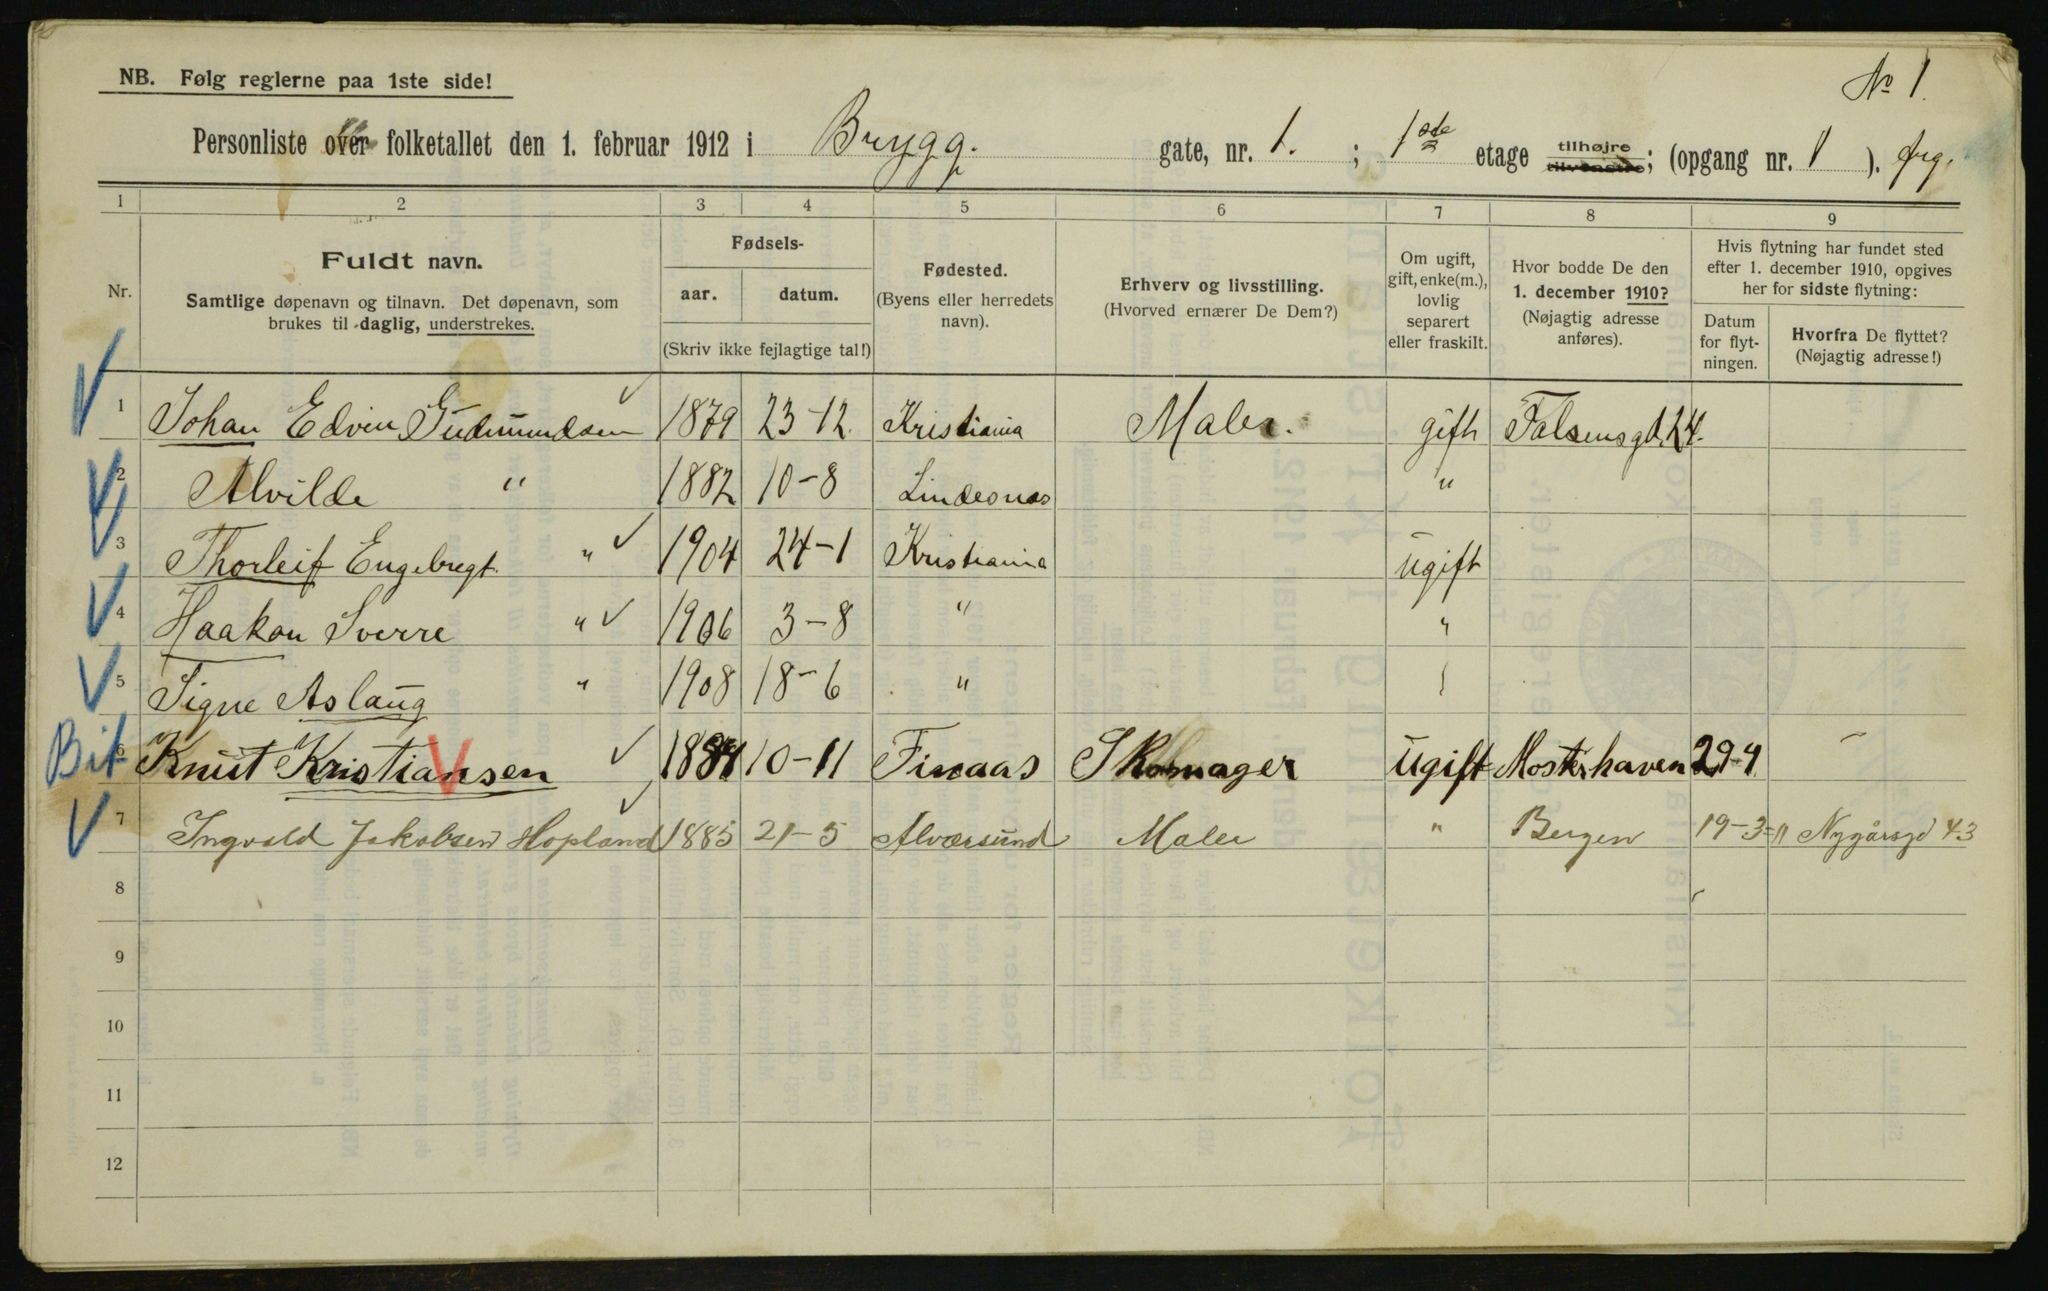 NB. Følg reglerne paa 1ste side!
No 1.
Personliste over folketallet den 1. februar 1912 i Brygg. gate, nr. 1. ; 1ste etage tilhøjre tilvenstre; (opgang nr. 1 ).
1 2 3 4 5 6 7 8 9
Nr.
Fuldt navn.
Samtlige døpenavn og tilnavn. Det døpenavn, som
brukes til daglig, understrekes.
Fødsels-
aar. datum.
(Skriv ikke fejlagtige tal!)
Fødested.
(Byens eller herredets
navn).
Erhverv og livsstilling.
(Hvorved ernærer De Dem?)
Om ugift,
gift, enke(m.),
lovlig
separert
eller fraskilt.
Hvor bodde De den
1. december 1910?
(Nøjagtig adresse
anføres).
Hvis flytning har fundet sted
efter 1. december 1910, opgives
her for sidste flytning:
Datum
for flyt-
ningen.
Hvorfra De flyttet?
(Nøjagtig adresse!)
1 Johan Edvin Gudmundsen 1879 23-12. Kristiania Maler. gift Falsensgd. 24.
2 Alvilde " 1882 10-8 Lindesnes "
3 Thorleif Engebregt. " 1904 24-1 Kristiania ugift
4 Haakon Sverre " 1906 3-8 " "
5 Signe Aslaug " 1908 18-6 "
Bit 6 Knut Kristiansen 1884 10-11 Finaas Skomager ugift Mosterhaven 29-4 -
7 Ingvald Jakobsen Hopland 1885 21-5 Alværsund Maler " Bergen 19-3-11 Nygårsgd 43
8
9
10
11
12